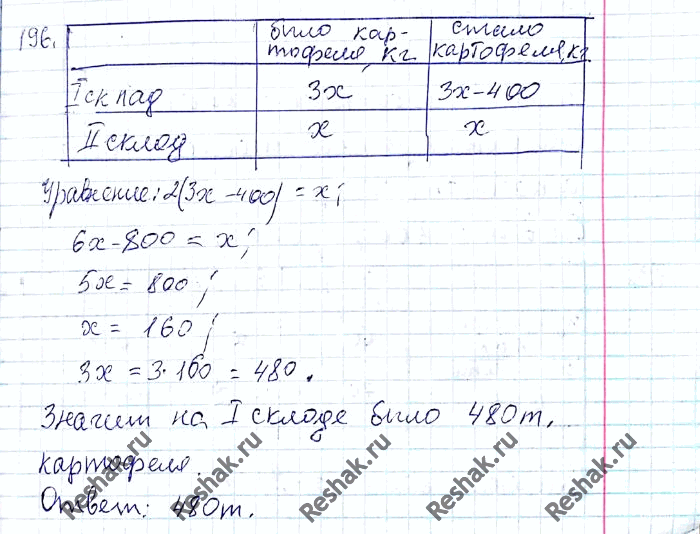 196.
было кар-
тофеля, кг
стало
картофеля, кг
I склад
3x
3x-400
II склад
x
x
Уравнение: 2(3x-400) = x;
6x-800 = x;
5x = 800;
x = 160;
3x = 3·160 = 480.
Значит на I складе было 480т.
картофеля.
Ответ: 480т.
Reshak.ru
Reshak.ru
Reshak.ru
Reshak.ru
Reshak.ru